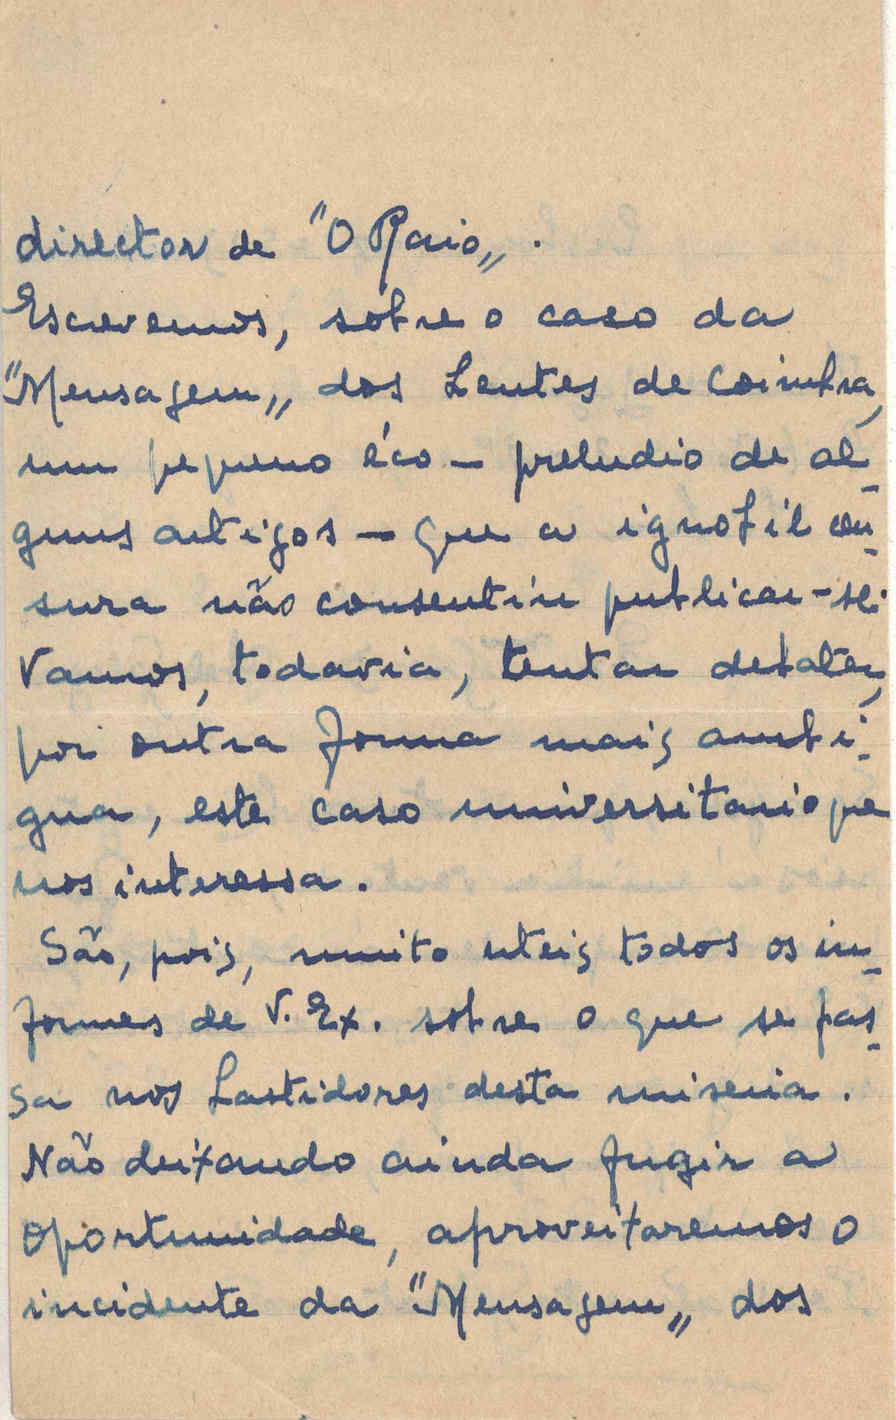 director de "O Raio„.
Escrevemos, sobre o caso da
"Mensagem„ dos Lentes de Coimbra,
um pequeno éco — preludio de al-
guns artigos — que a ignobil cen-
sura não consentiu publicar-se.
Vamos, todavia, tentar debater,
por outra forma mais ambi-
gua, este caso universitario que
nos interessa.
São, pois, muito uteis todos os in-
formes de V. Ex. sobre o que se pas-
sa nos bastidores desta miseria.
Não deixando ainda fugir a
oportunidade, aproveitaremos o
incidente da "Mensagem„ dos